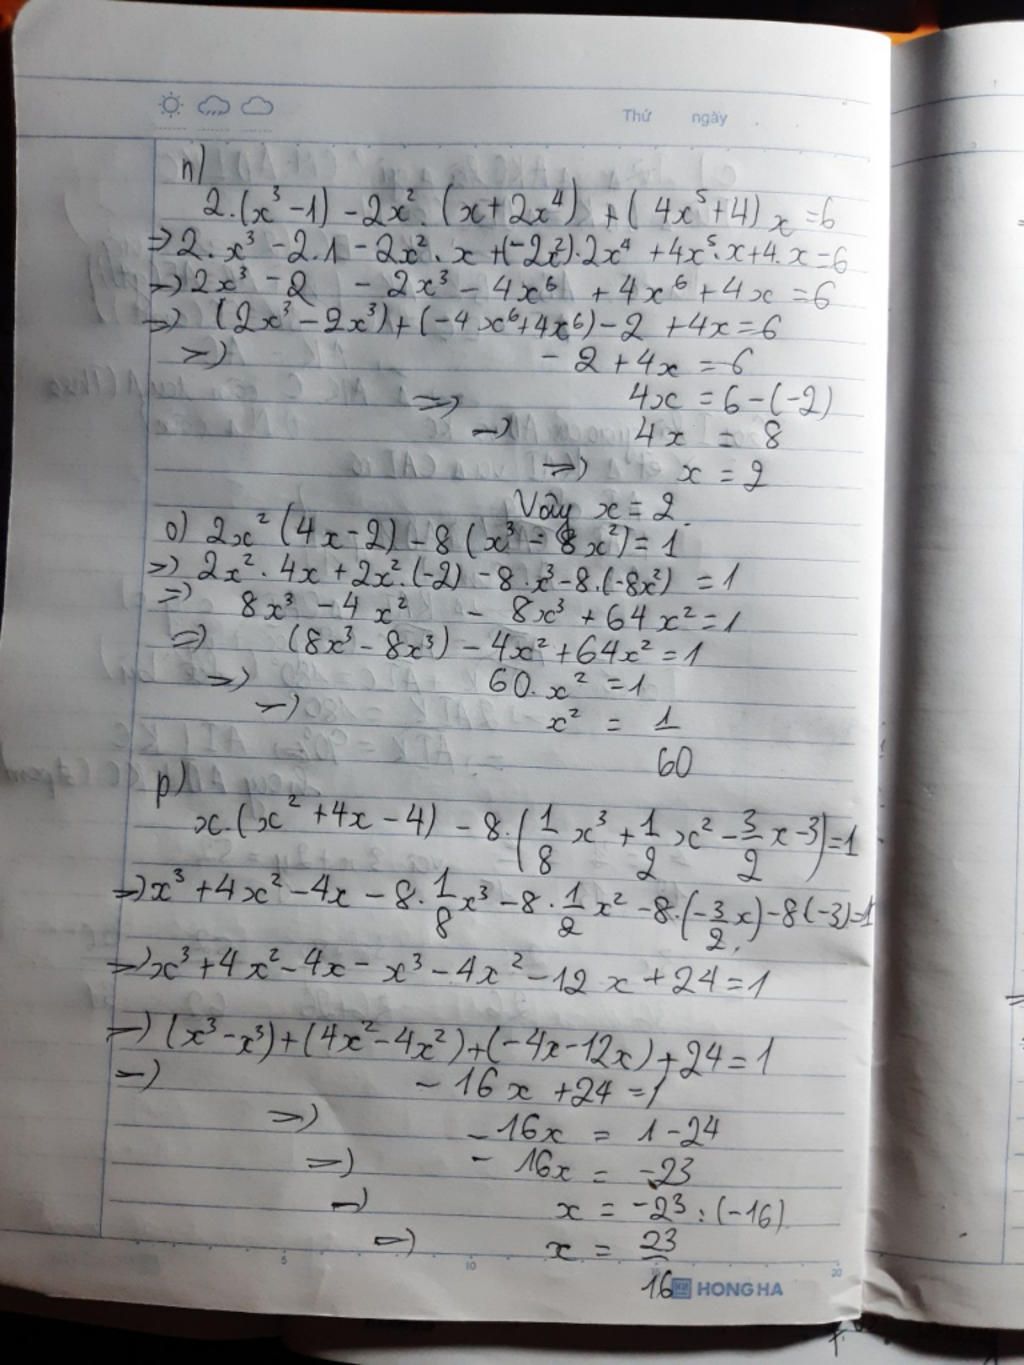 Thứ ngày
n)
2.(x³ -1) - 2x². (x+2x⁴) + ( 4x⁵+4) x =6
=> 2. x³ - 2.1 - 2x². x +(-2x²).2x⁴ + 4x⁵. x+4. x=6
=> 2x³ - 2 - 2x³ - 4x⁶ + 4x⁶ + 4x =6
=> (2x³ - 2x³)+(-4x⁶+4x⁶) - 2 +4x=6
=> - 2 + 4x = 6
=> 4x = 6 - (-2)
=> 4x = 8
=> x = 2
Vậy x = 2.
o) 2x² (4x-2) - 8 (x³ - 8x²)= 1
=> 2x². 4x + 2x².(-2) - 8.x³-8.(-8x²) = 1
=> 8x³ - 4x² - 8x³ + 64x²=1
=> (8x³ - 8x³) - 4x²+64x²=1
=> 60. x² =1
=> x² = 1/60
p)
x.(x² +4x - 4) - 8.(1/8 x³ + 1/2 x² - 3/2 x -3)=1
=> x³ +4x² - 4x - 8. 1/8 x³ - 8. 1/2 x² - 8.(-3/2 x) - 8(-3)=1
=> x³ +4x² - 4x - x³ - 4x² - 12 x + 24 = 1
=> (x³-x³)+(4x²-4x²)+(-4x-12x)+24=1
=> - 16x +24 =1
=> - 16x = 1-24
=> - 16x = -23
=> x = -23 : (-16)
=> x = 23/16
5 10 20
HONG HA